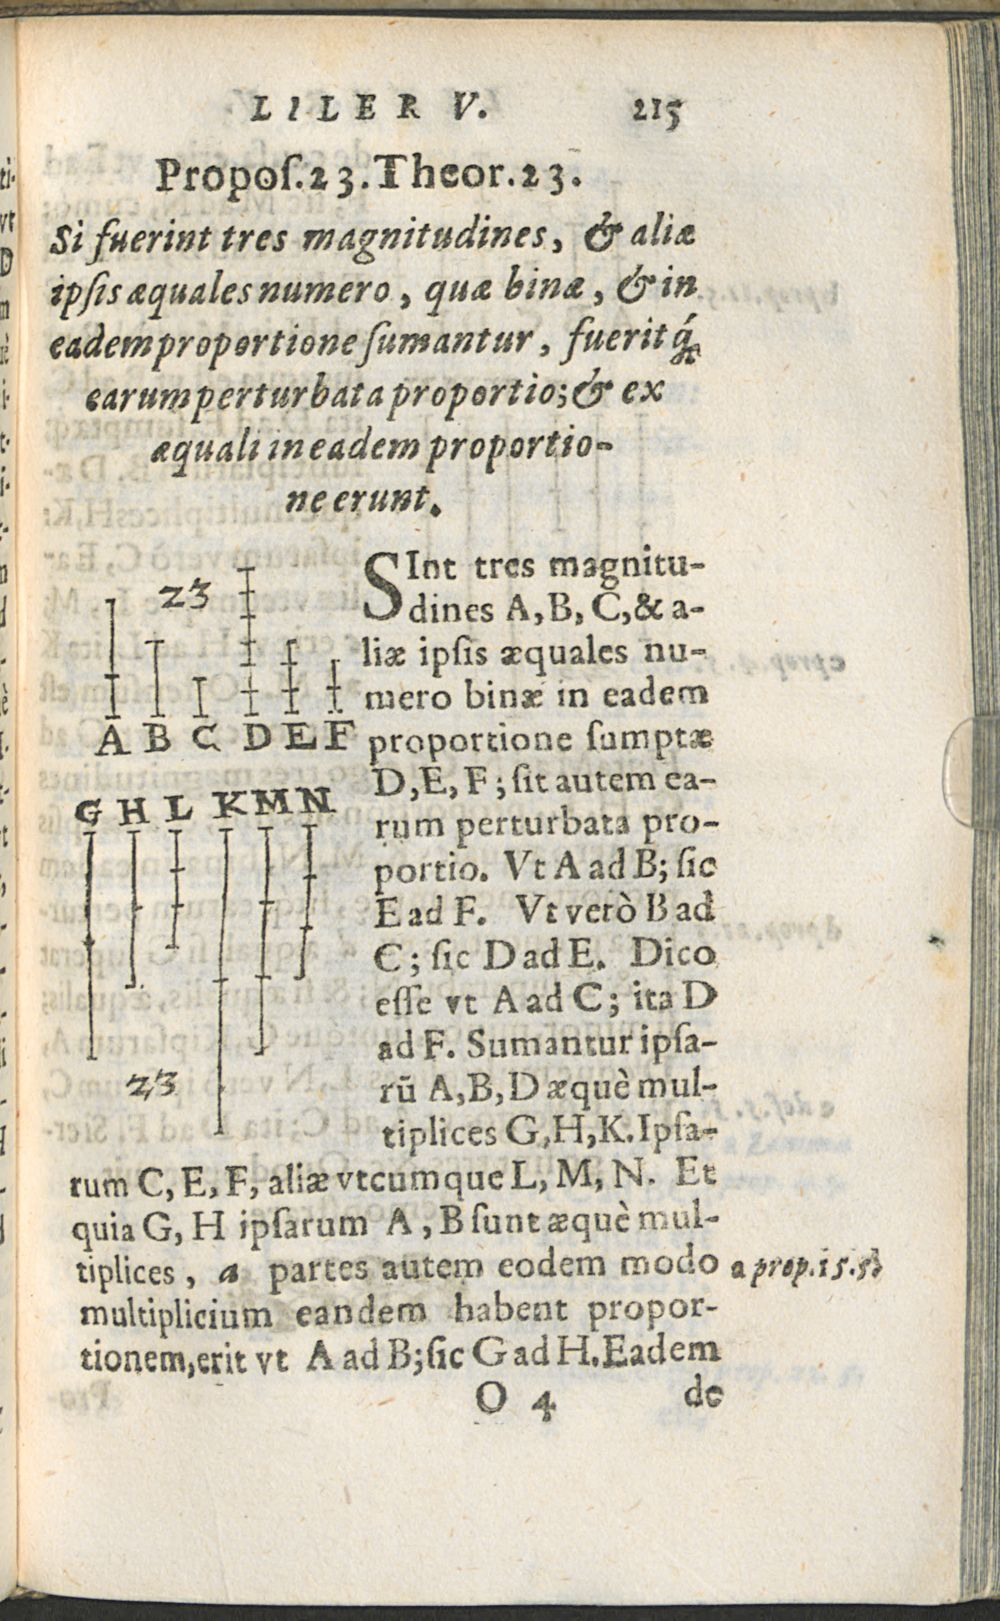 LILER V. 215
Propoſ.23.Theor.23.
Si fuerint tres magnitudines, & aliæ
ipſis æquales numero, quæ binæ, & in
eadem proportione ſumantur, fuerit q́;
earum perturbata proportio; & ex
æquali in eadem proportio-
ne erunt.
23
A B C D E F
G H L K M N
23
SInt tres magnitu-
dines A, B, C, & a-
liæ ipſis æquales nu-
mero binæ in eadem
proportione ſumptæ
D, E, F; ſit autem ea-
rum perturbata pro-
portio. Vt A ad B; ſic
E ad F. Vt verò B ad
C; ſic D ad E. Dico
eſſe vt A ad C; ita D
ad F. Sumantur ipſa-
rũ A, B, D æquè mul-
tiplices G, H, K. Ipſa-
rum C, E, F, aliæ vtcumque L, M, N. Et
quia G, H ipſarum A, B ſunt æquè mul-
tiplices, a partes autem eodem modo
a prop.15.5.
multiplicium eandem habent propor-
tionem, erit vt A ad B; ſic G ad H. Eadem
O 4 de